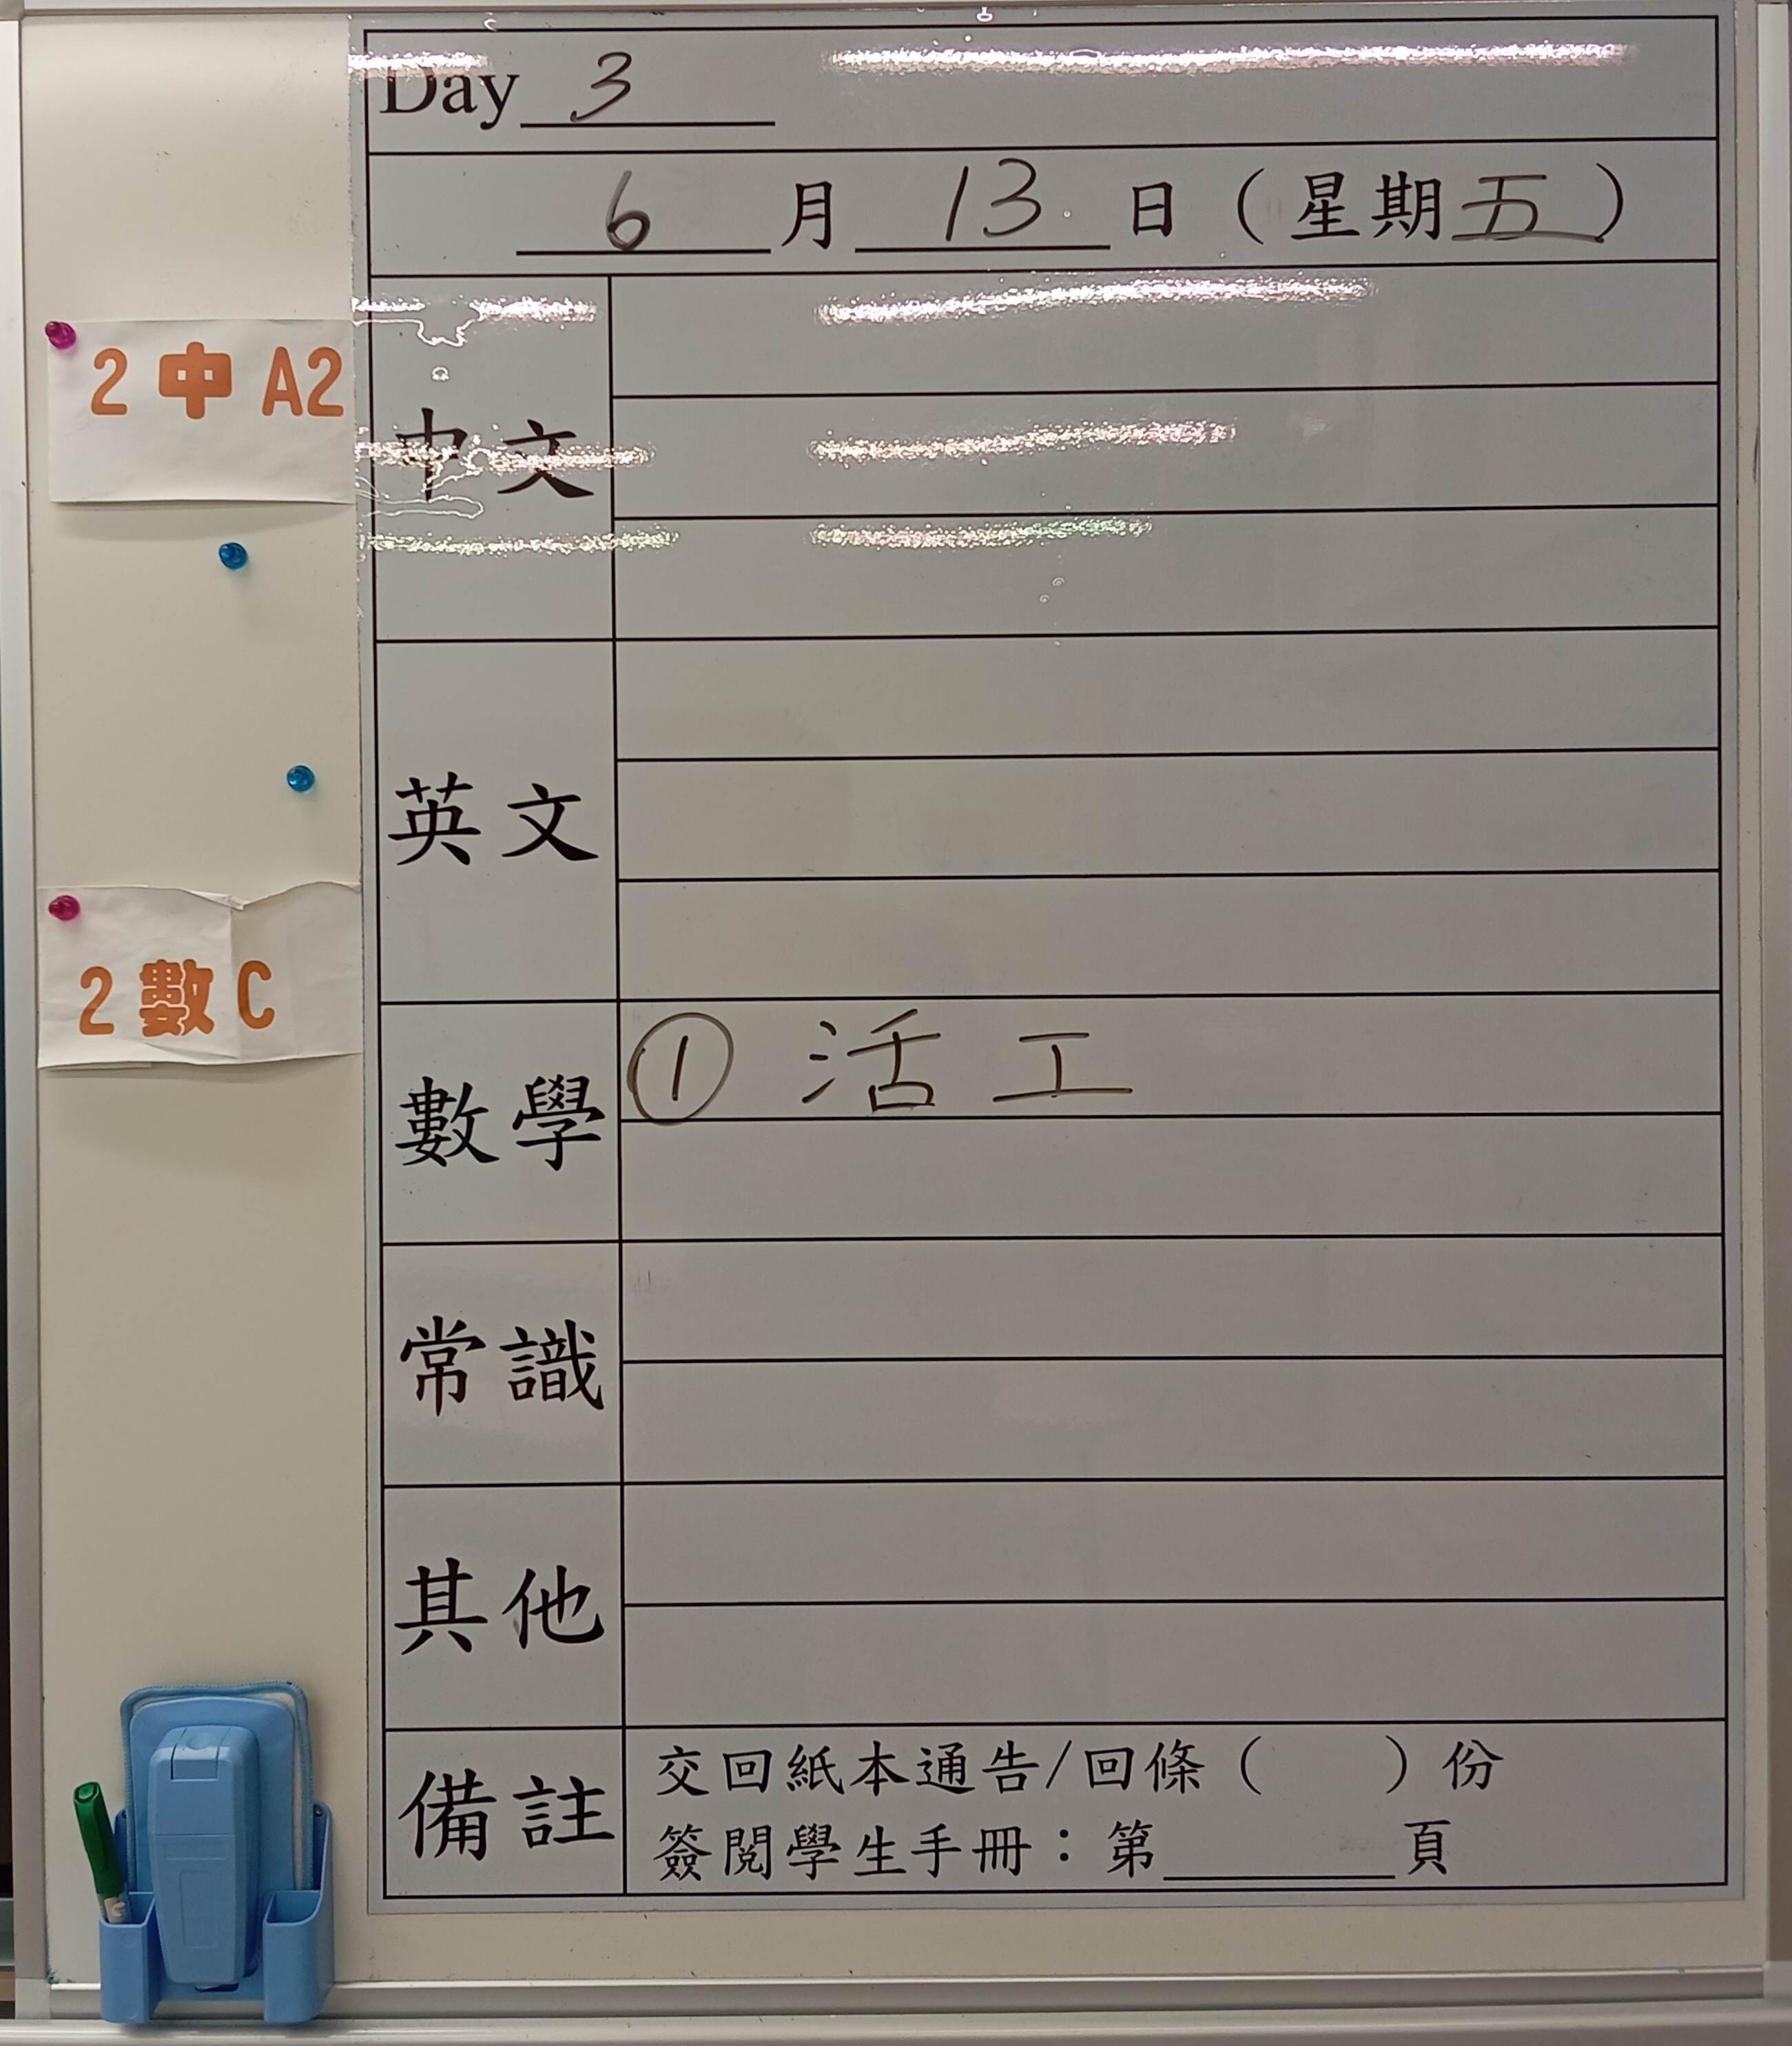 Day 3
6 月 13 日（星期五）
2 中 A2
中文
英文
2 數 C
數學 ① 活工
常識
其他
備註
交回紙本通告/回條（ ）份
簽閱學生手冊：第 頁